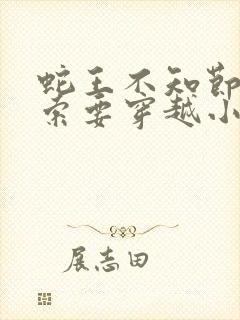 蛇王不知节
索要穿越小
展志田